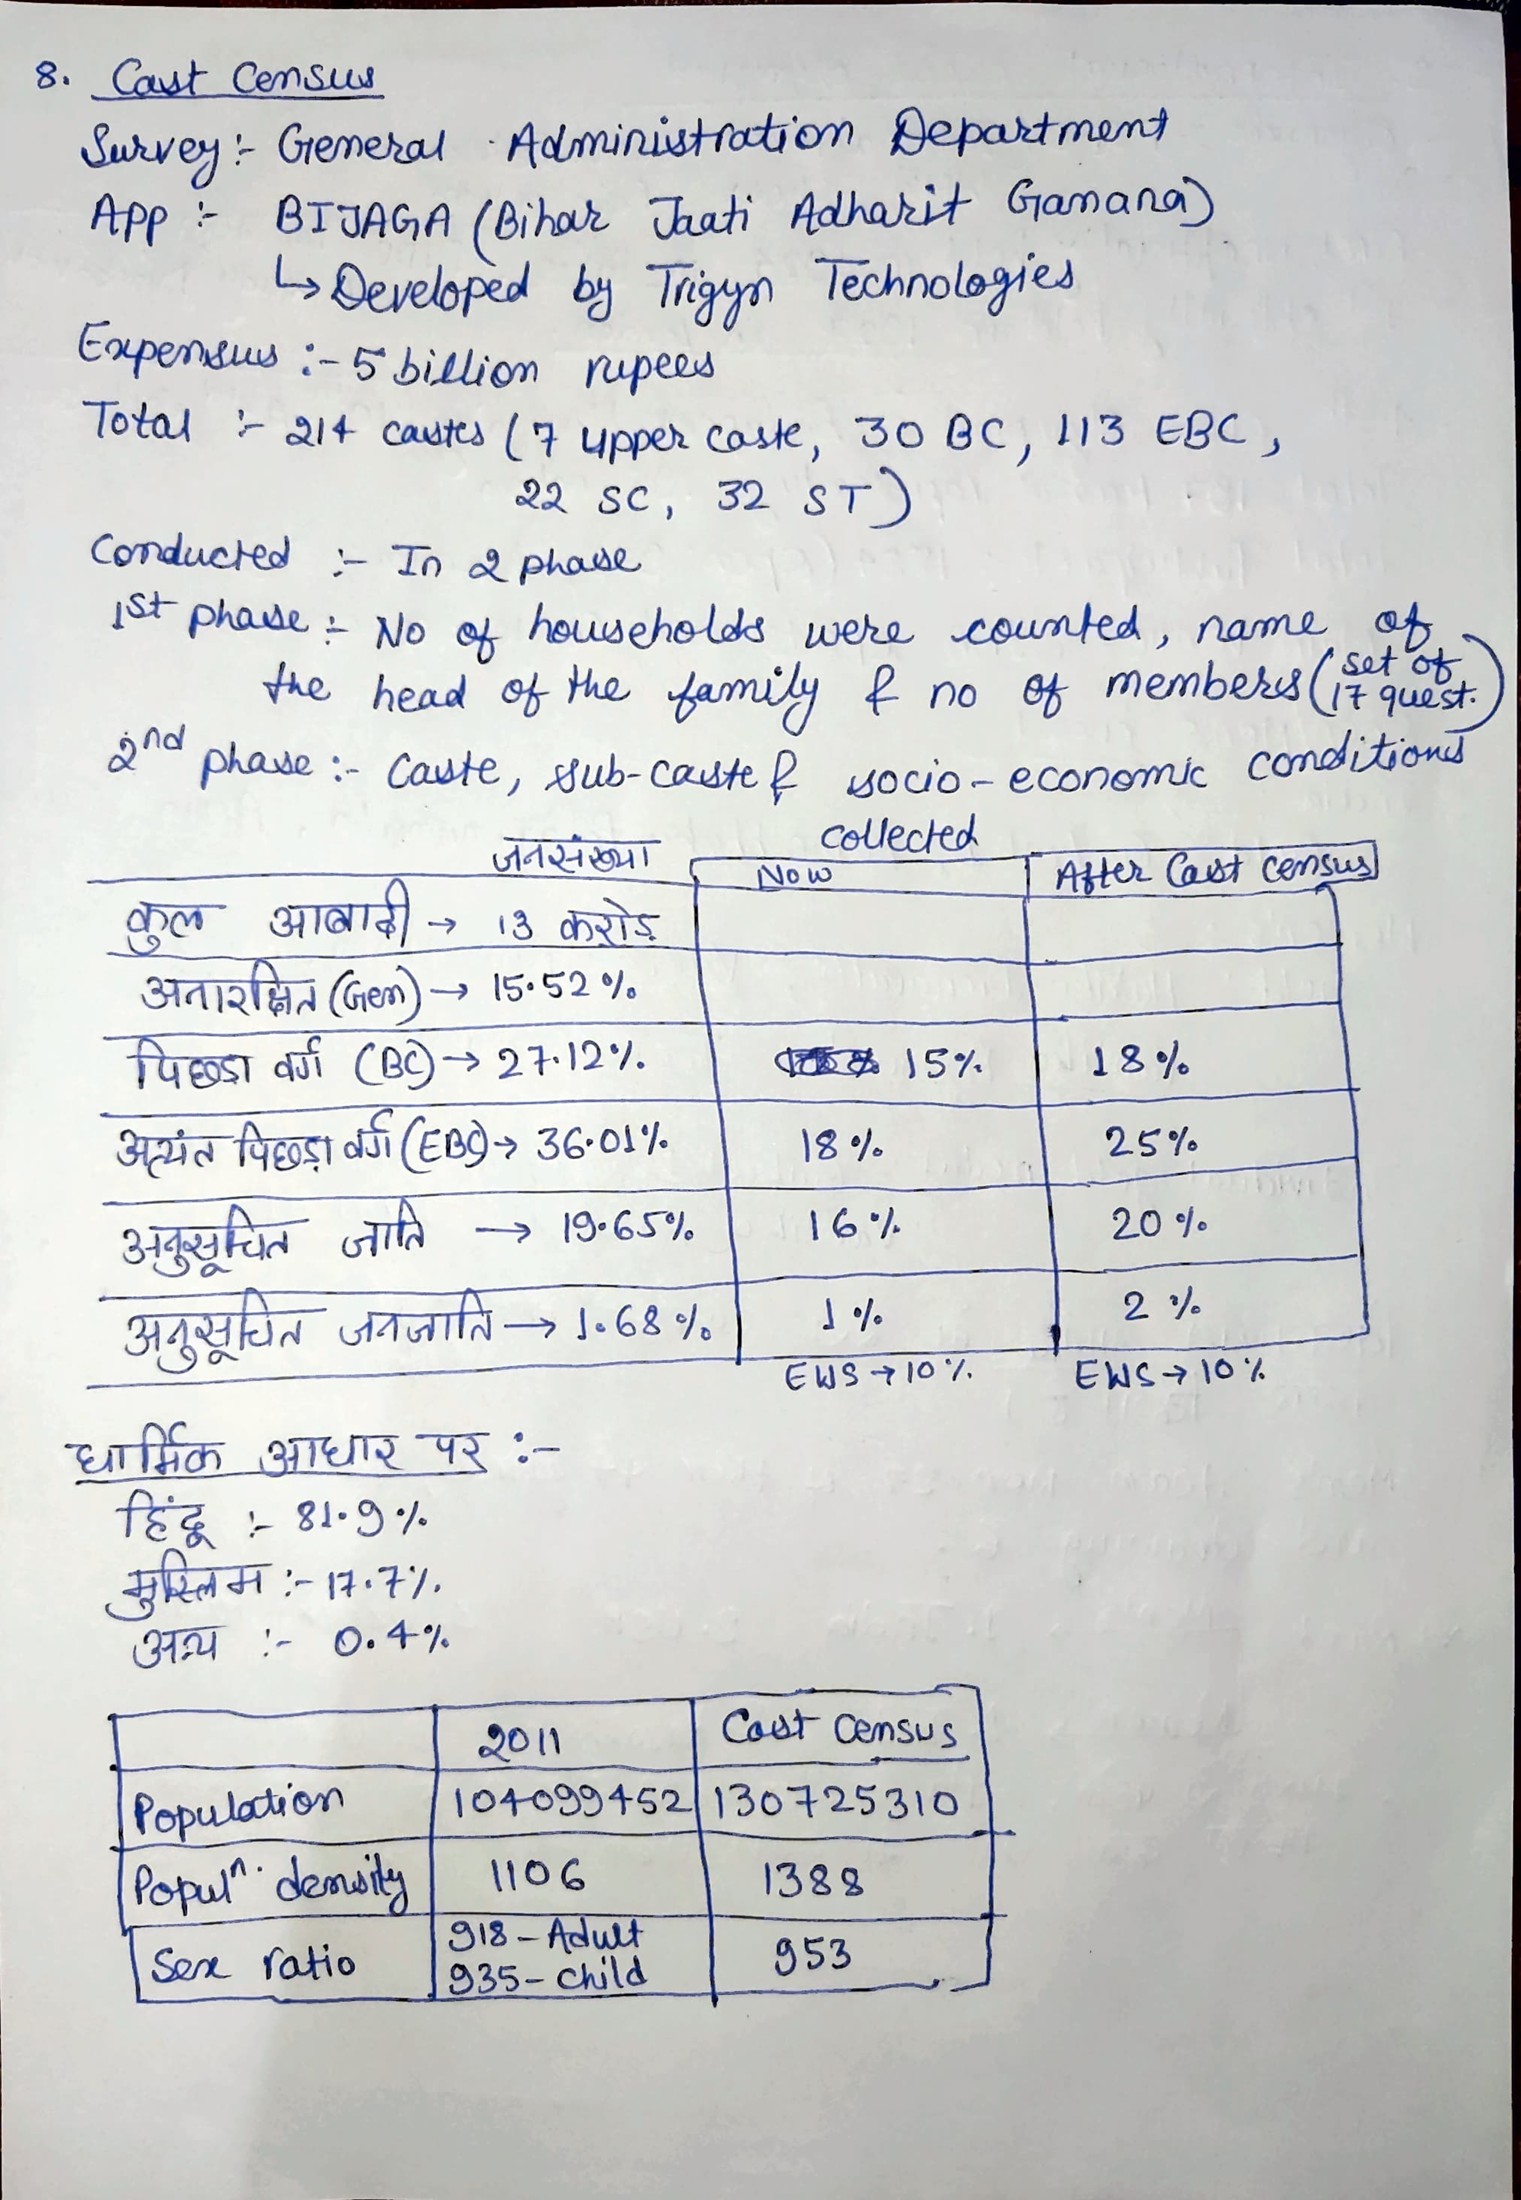 8. Cast Census
Survey :- General Administration Department
App :- BIJAGA (Bihar Jaati Adharit Ganana)
↳ Developed by Trigyn Technologies
Expensus :- 5 billion rupees
Total :- 214 castes (7 upper caste, 30 BC, 113 EBC,
22 SC, 32 ST)
Conducted :- In 2 phase
1st phase :- No of households were counted, name of
the head of the family & no of members (set of 17 quest.)
2nd phase :- Caste, sub-caste & socio-economic conditions
collected
जनसंख्या Now After Cast Census
कुल आबादी → 13 करोड़
अनारक्षित (Gen) → 15.52%
पिछड़ा वर्ग (BC) → 27.12% 15% 18%
अत्यंत पिछड़ा वर्ग (EBC) → 36.01% 18% 25%
अनुसूचित जाति → 19.65% 16% 20%
अनुसूचित जनजाति → 1.68% 1% 2%
EWS → 10% EWS → 10%
धार्मिक आधार पर :-
हिंदू :- 81.9%
मुस्लिम :- 17.7%
अन्य :- 0.4%
2011 Cast Census
Population 104099452 130725310
Populⁿ. density 1106 1388
Sex ratio 918 - Adult 953
935 - child